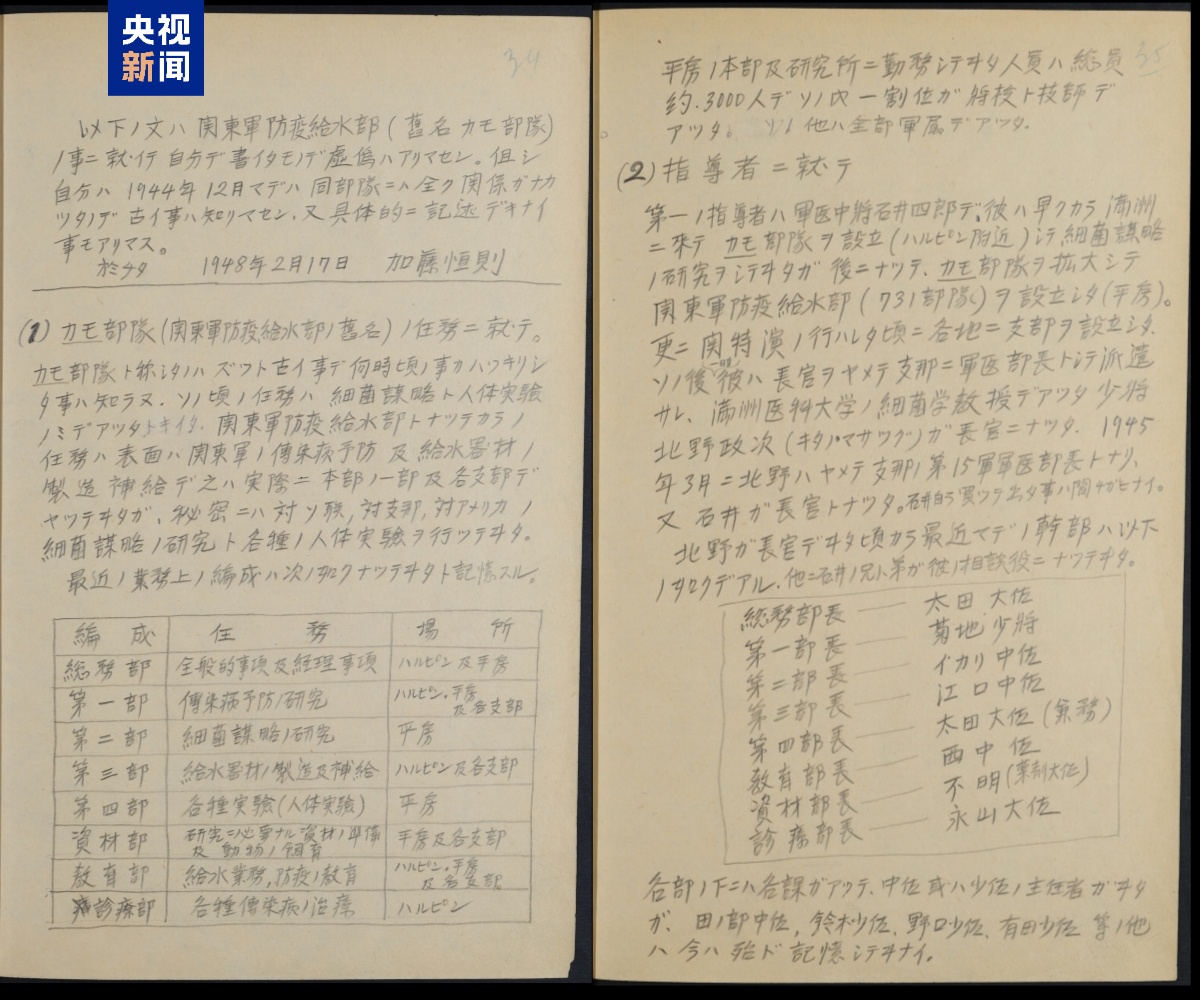 央视
新闻
34
以下ノ文ハ関東軍防疫給水部(舊名カモ部隊)
ノ事ニ就イテ自分デ書イタモノデ虚偽ハアリマセン。但シ
自分ハ1944年12月マデハ同部隊ニハ全ク関係ガナカ
ツタノデ古イ事ハ知リマセン.又具体的ニ記述デキナイ
事モアリマス。
於チタ 1948年2月17日 加藤恒則
(1) カモ部隊(関東軍防疫給水部ノ舊名)ノ任務ニ就テ。
カモ部隊ト称シタハズツト古イ事デ何時頃ノ事カハツキリシ
タ事ハ知ラヌ.ソノ頃ノ任務ハ細菌謀略ト人体実験
ノミデアツタトキイタ.関東軍防疫給水部トナツテカラノ
任務ハ表面ハ関東軍ノ傳染病予防及給水器材ノ
製造補給デ之ハ実際ニ本部ノ一部及各支部デ
ヤツテヰタガ、秘密ニハ対ソ聯,対支那,対アメリカノ
細菌謀略ノ研究ト各種ノ人体実験ヲ行ツテヰタ。
最近ノ業務上ノ編成ハ次ノ如クナツテヰタト記憶スル。
編成 任務 場所
総務部 全般的事項及経理事項 ハルピン及平房
第一部 傳染病予防ノ研究 ハルピン.平房及各支部
第二部 細菌謀略ノ研究 平房
第三部 給水器材ノ製造及補給 ハルピン及各支部
第四部 各種実験(人体実験) 平房
資材部 研究ニ必要ナル資材ノ準備及動物ノ飼育 平房及各支部
教育部 給水業務,防疫ノ教育 ハルピン.平房及各支部
診療部 各種傳染病ノ治療 ハルピン
35
平房ノ本部及研究所ニ勤務シテヰタ人員ハ総員
約.3000人デソノ内一割位ガ将校ト技師デ
アツタ。ソノ他ハ全部軍属デアツタ.
(2) 指導者ニ就テ
第一ノ指導者ハ軍医中將石井四郎デ,彼ハ早クカラ満州
ニ來テカモ部隊ヲ設立(ハルピン附近)シテ細菌謀略
ノ研究ヲシテヰタガ後ニナツテ、カモ部隊ヲ拡大シテ
関東軍防疫給水部(731部隊)ヲ設立シタ(平房)。
更ニ関特演ノ行ハレタ頃ニ各地ニ支部ヲ設立シタ.
ソノ後一時彼ハ長官ヲヤメテ支那ニ軍医部長トシテ派遣
サレ、満州医科大学ノ細菌学教授デアツタ少将
北野政次(キタノマサツグ)ガ長官ニナツタ. 1945
年3月ニ北野ハヤメテ支那ノ第15軍軍医部長トナリ、
又石井ガ長官トナツタ。石井自ラ買ツテ出タ事ハ間チガヒナイ。
北野ガ長官デヰタ頃カラ最近マデノ幹部ハ以下
ノ如クデアル.他ニ石井ノ兄ト弟ガ彼ノ相談役ニナツテヰタ。
総務部長 —— 太田大佐
第一部長 —— 菊地少将
第二部長 —— イカリ中佐
第三部長 —— 江口中佐
第四部長 —— 太田大佐(兼務)
教育部長 —— 西中佐
資材部長 —— 不明(薬剤大佐)
診療部長 —— 永山大佐
各部ノ下ニハ各課ガアツテ、中佐或ハ少佐ノ主任者ガヰタ
ガ、田ノ部中佐,鈴木少佐、野口少佐、有田少佐等ノ他
ハ今ハ殆ド記憶シテヰナイ。